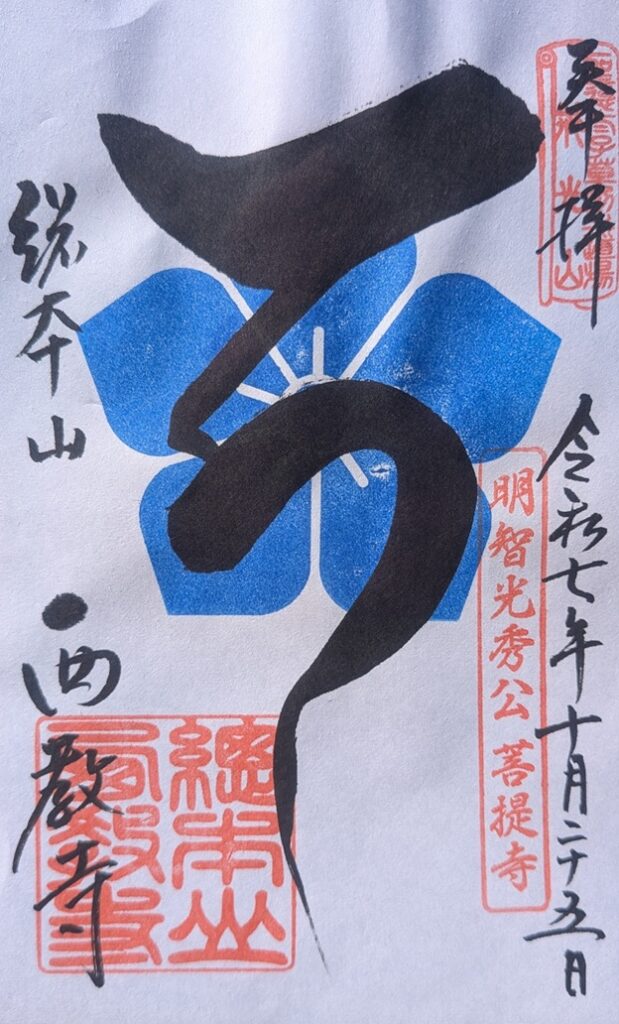 奉拝
令和七年十月二十五日
明智光秀公 菩提寺
総本山
西教寺
總本山
西教寺